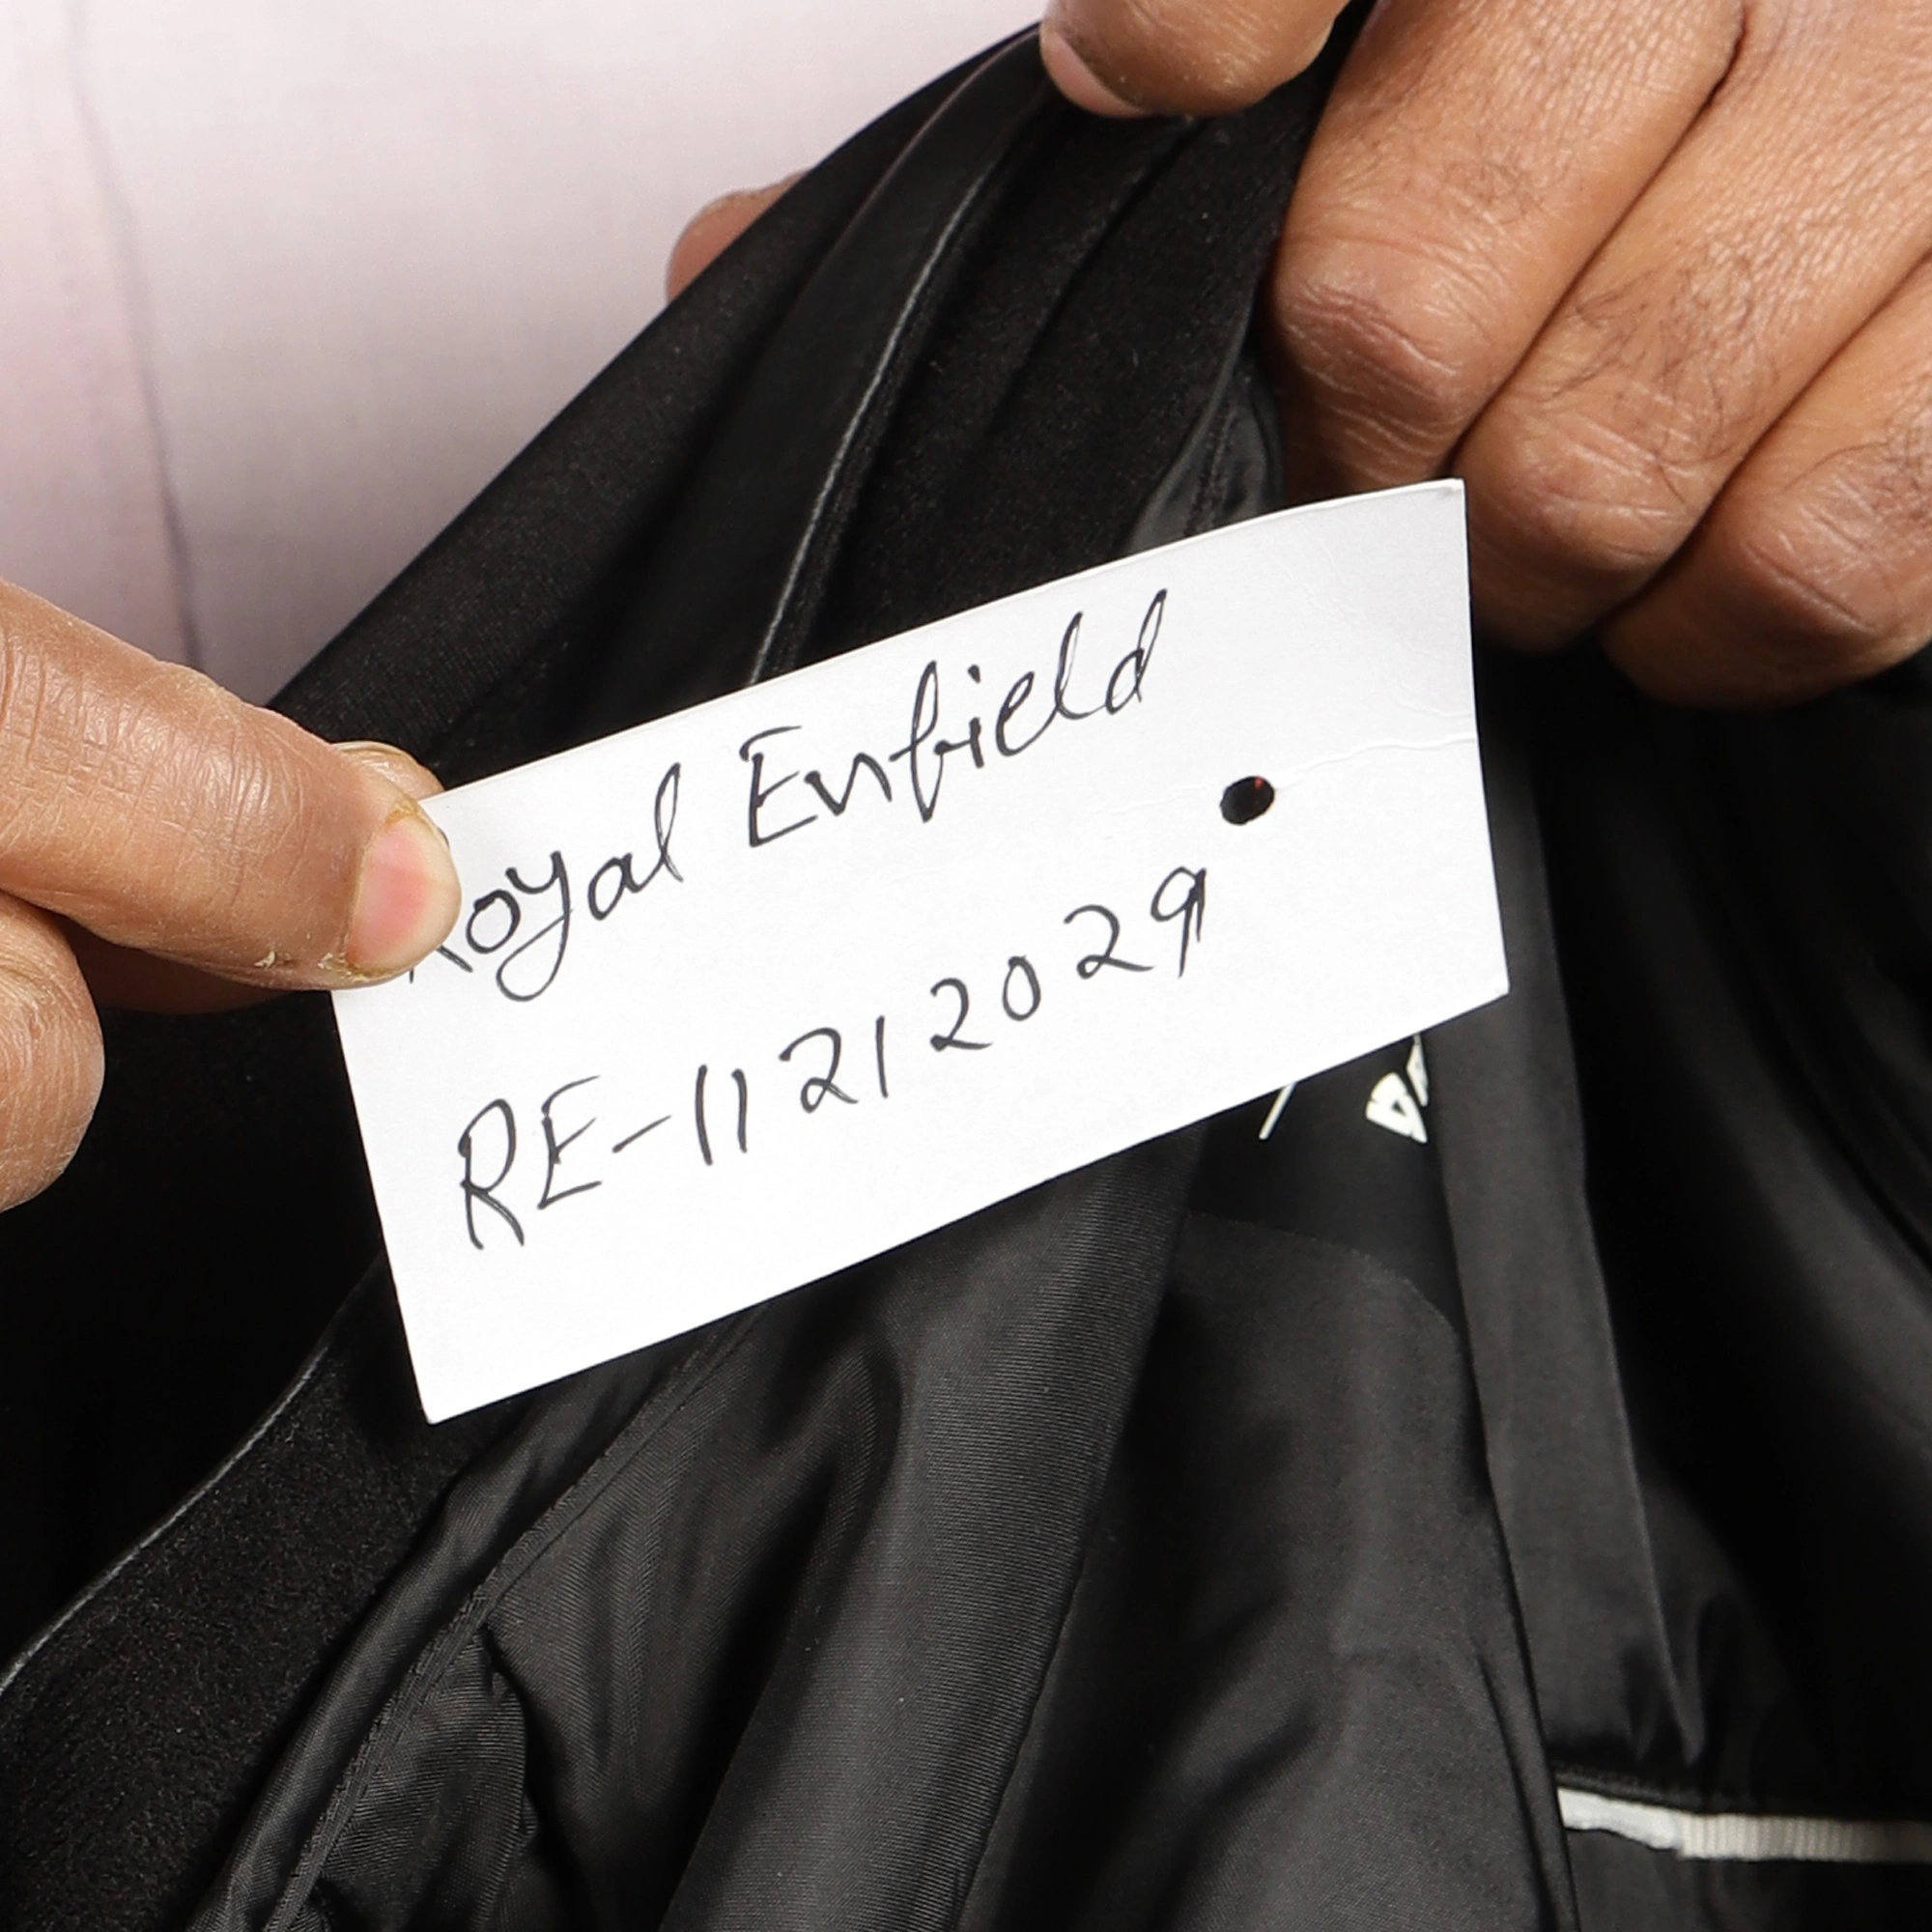 Royal Enfield
RE-11212029